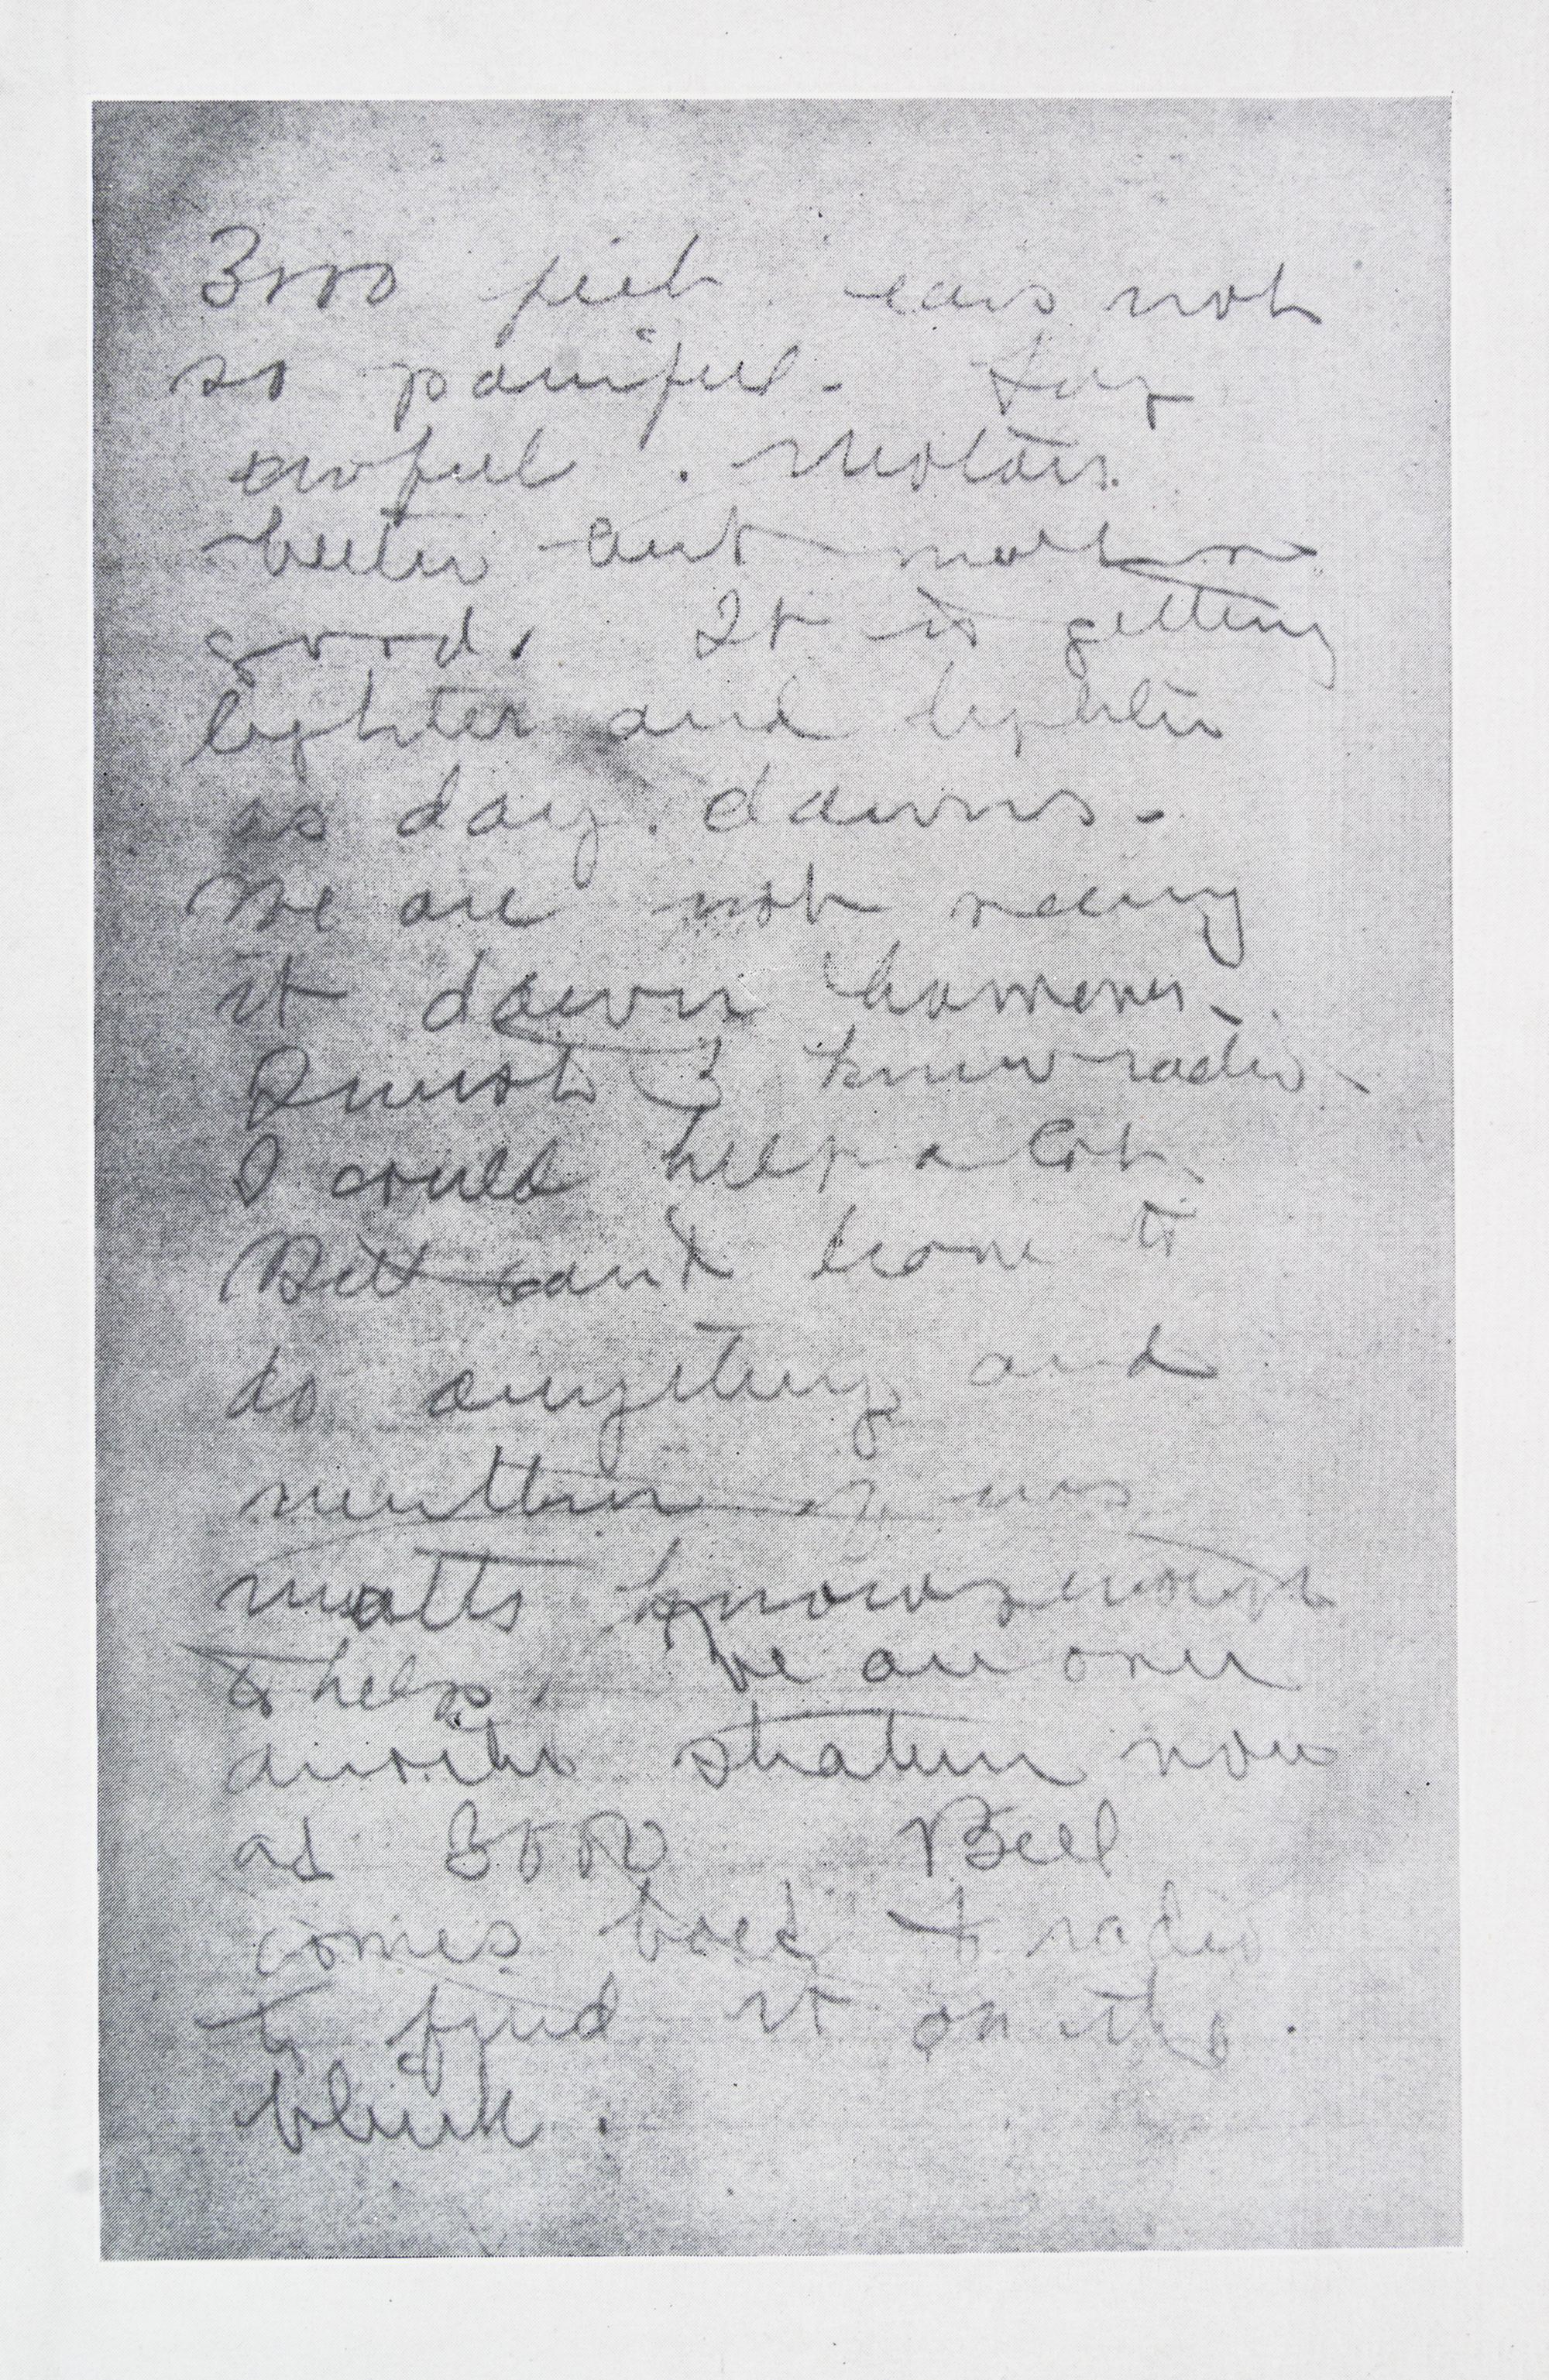 3000 feet. ears not
so painful - fog
awful. Motors
better but not so
good. It is getting
lighter and lighter
as day dawns -
We are not seeing
it dawn however.
I wish I knew radio -
I could help a lot
Bill can't leave to
do anything and
neither of us
matts knows enough
to help. We are over
stratum now
at 3000 Bill
comes back to radio
to find it on the
blink.